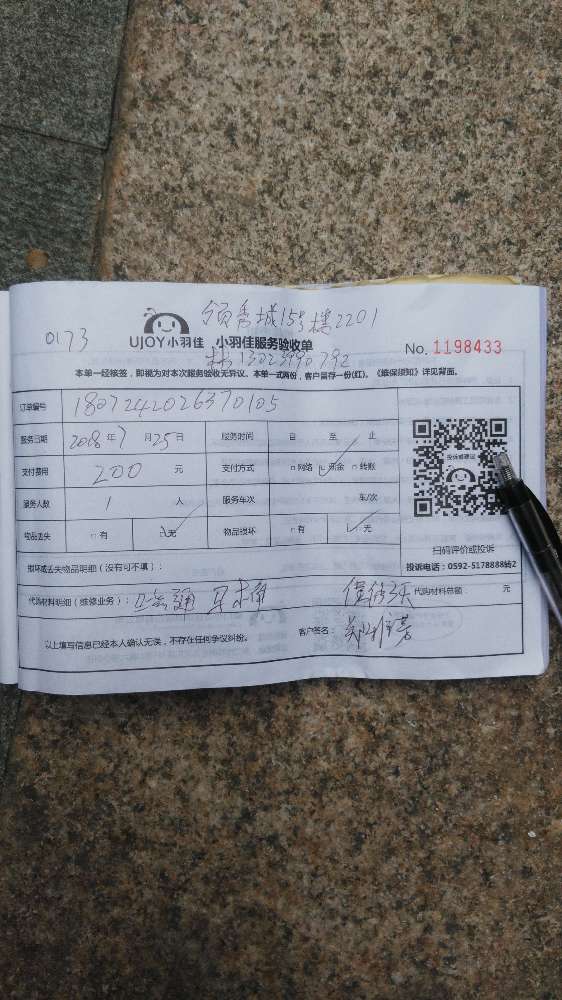 领秀城15号楼2201
0173
UJOY小羽佳 小羽佳服务验收单
No. 1198433
林13023990792
本单一经核签，即视为对本次服务验收无异议、本单一式两份，客户留存一份(红)。《维保须知》详见背面。
订单编号 180724202637​0105
服务日期 2018年7月25日 服务时间 自 至 止
支付费用 200 元 支付方式 □网络 ☑现金 □转账
服务人数 1 人 服务车次 车/次
物品丢失 □有 ☑无 物品损坏 □有 ☑无
投诉或建议
扫码评价或投诉
投诉电话：0592-5178888转2
损坏或丢失物品明细（没有可不填）：
代购材料明细（维修业务）： 代购材料总额： 元
以上填写信息已经本人确认无误，不存在任何争议纠纷。 客户签名：